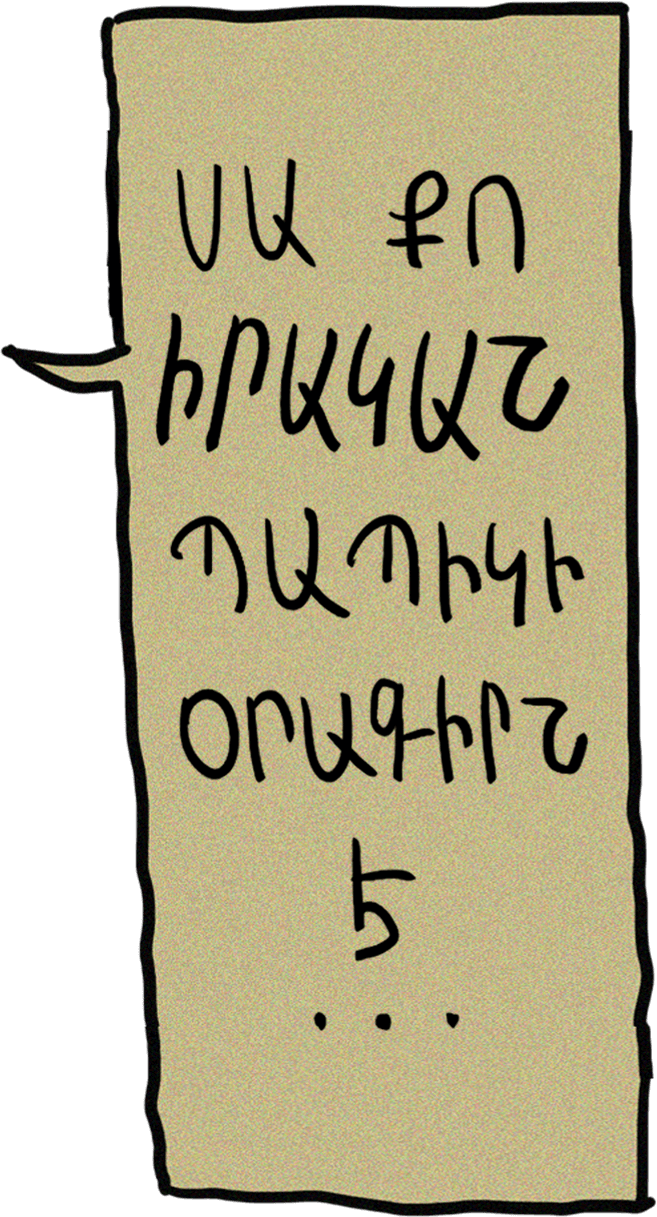 ՍԱ ՔՈ
ԻՐԱԿԱՆ
ՊԱՊԻԿԻ
ՕՐԱԳԻՐՆ
Է
...